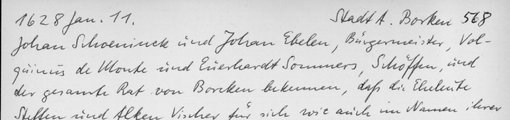 1628 Jan. 11. Stadt A. Borken 568
Johan Schoeninck und Johan Ebelen, Bürgermeister, Vol-
quinus de Monte und Euerhardt Sommers, Schöffen, und
der gesamte Rat von Borcken bekennen, daß die Eheleute
Steffen und Alken Vischer für sich wie auch im Namen ihrer